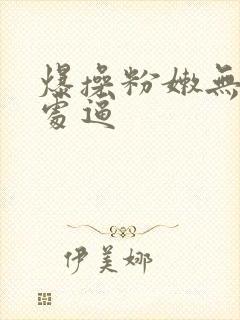 爆操粉嫩無
處逼
伊美娜